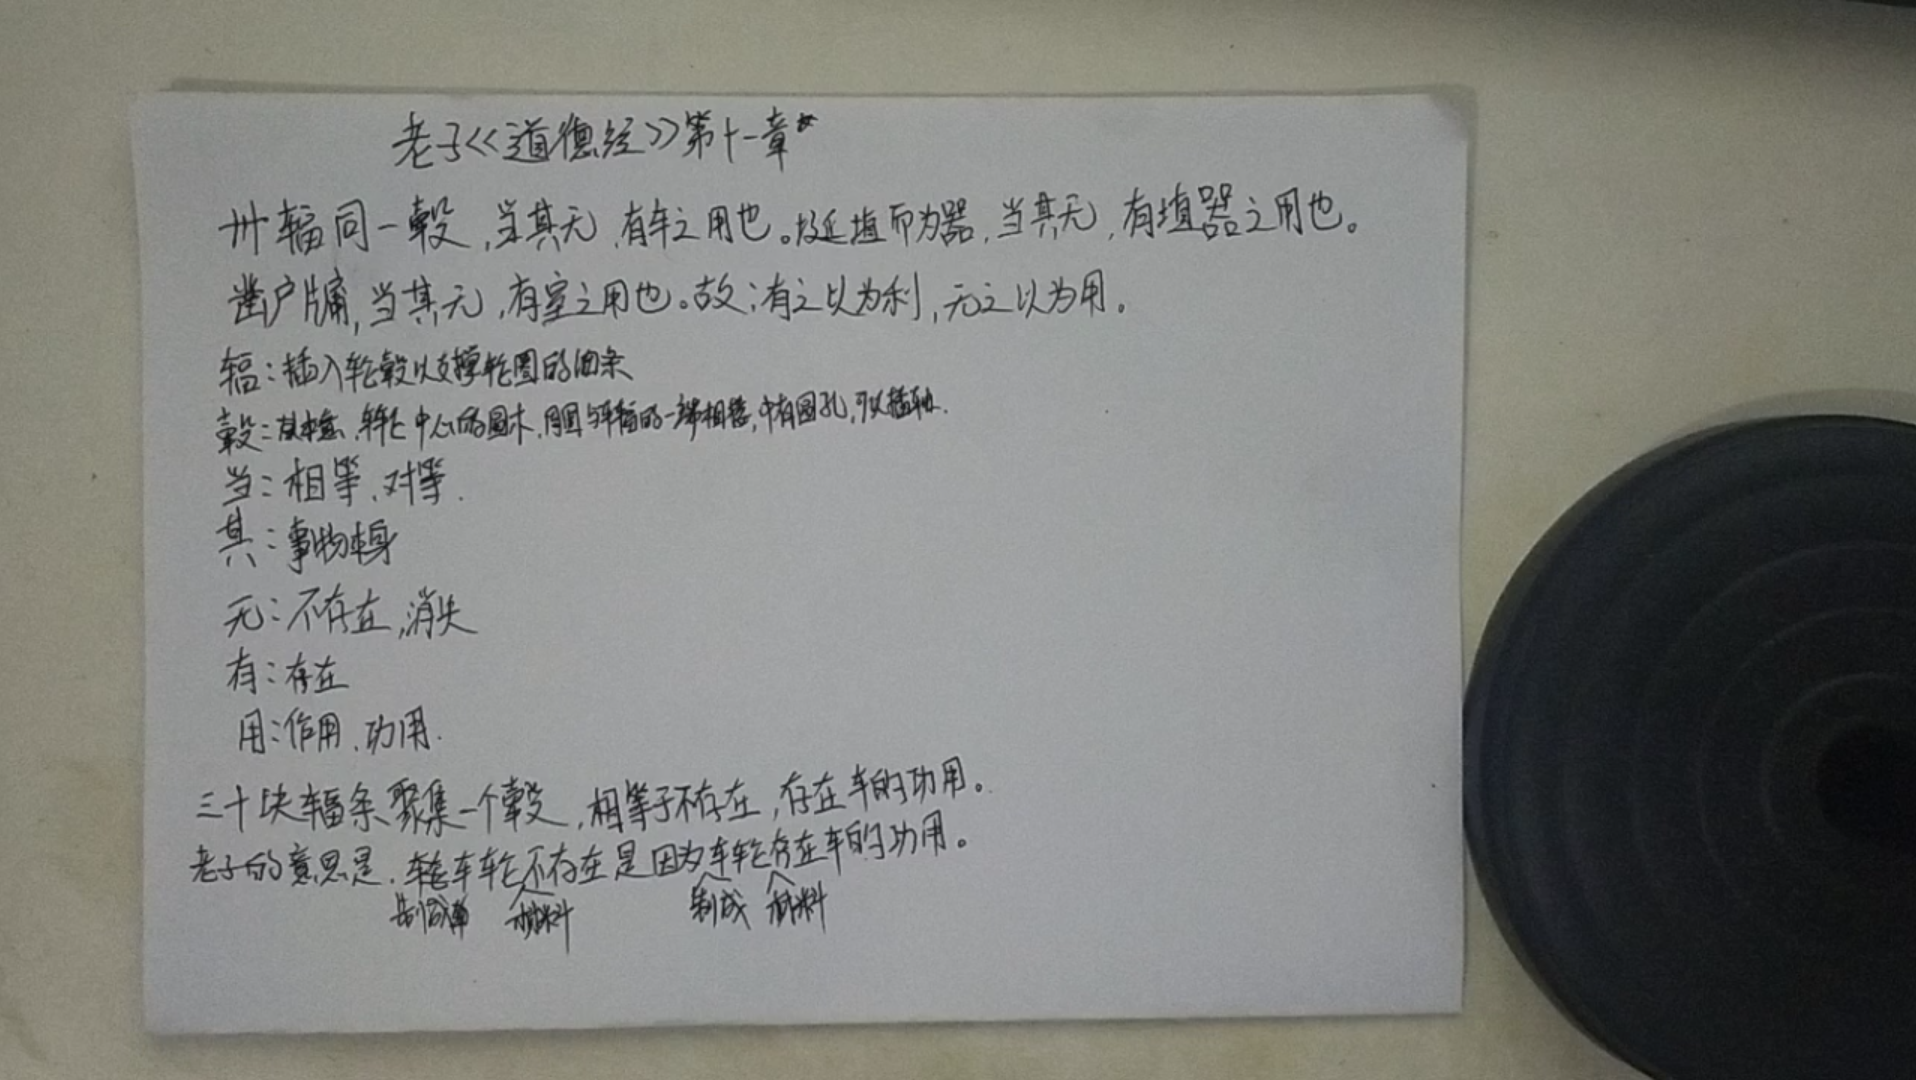 老子《道德经》第十一章
卅辐同一毂,当其无,有车之用也。埏埴而为器,当其无,有埴器之用也。
凿户牖,当其无,有室之用也。故:有之以为利,无之以为用。
辐:插入轮毂以支撑轮圈的细条
毂:基本意,车轮中心的圆木,周围与车辐的一端相接,中有圆孔,可以插轴.
当:相等、对等.
其:事物本身
无:不存在,消失
有:存在
用:作用、功用.
三十块辐条聚集一个毂,相等于不存在,存在车的功用。
老子的意思是.车轮不存在是因为车轮存在车的功用。
制成 材料 制成 材料